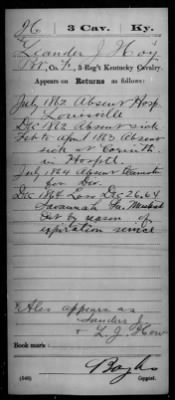 H | 3 Cav. | Ky.
Leander J. Hoy
Pvt, Co. F, 3 Reg't Kentucky Cavalry.
Appears on Returns as follows:
July 1862 Absent Hosp.
Louisville
Dec 1862 Absent sick
Feb & April 1863 Absent
sick at Corinth
in Hosptl
July 1864 Absent teamster
for Div.
Dec 1864 Loss Dec 26, 64
Savannah Ga. Mustered
Out by reason of
expiration service
Also appears as
Lander J.
& L. J. How
Book mark:
(546)
Copyist.